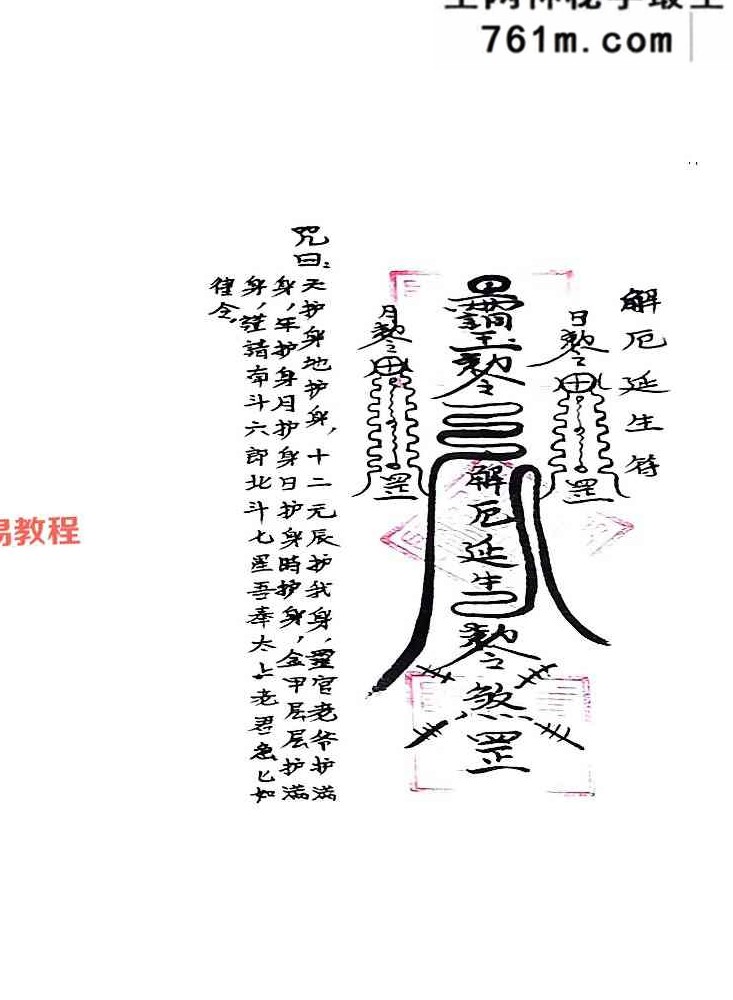 761m.com
解厄延生符
日敕令
罡
解厄延生
敕令
煞罡
月敕令
罡
咒曰：
天护身地护身，十二元辰护我身，靈官老爷护满
身，年护身月护身日护身時护身，金甲层层护满
身，谨請南斗六郎北斗七星吾奉太上老君急匕如
律令，
易教程